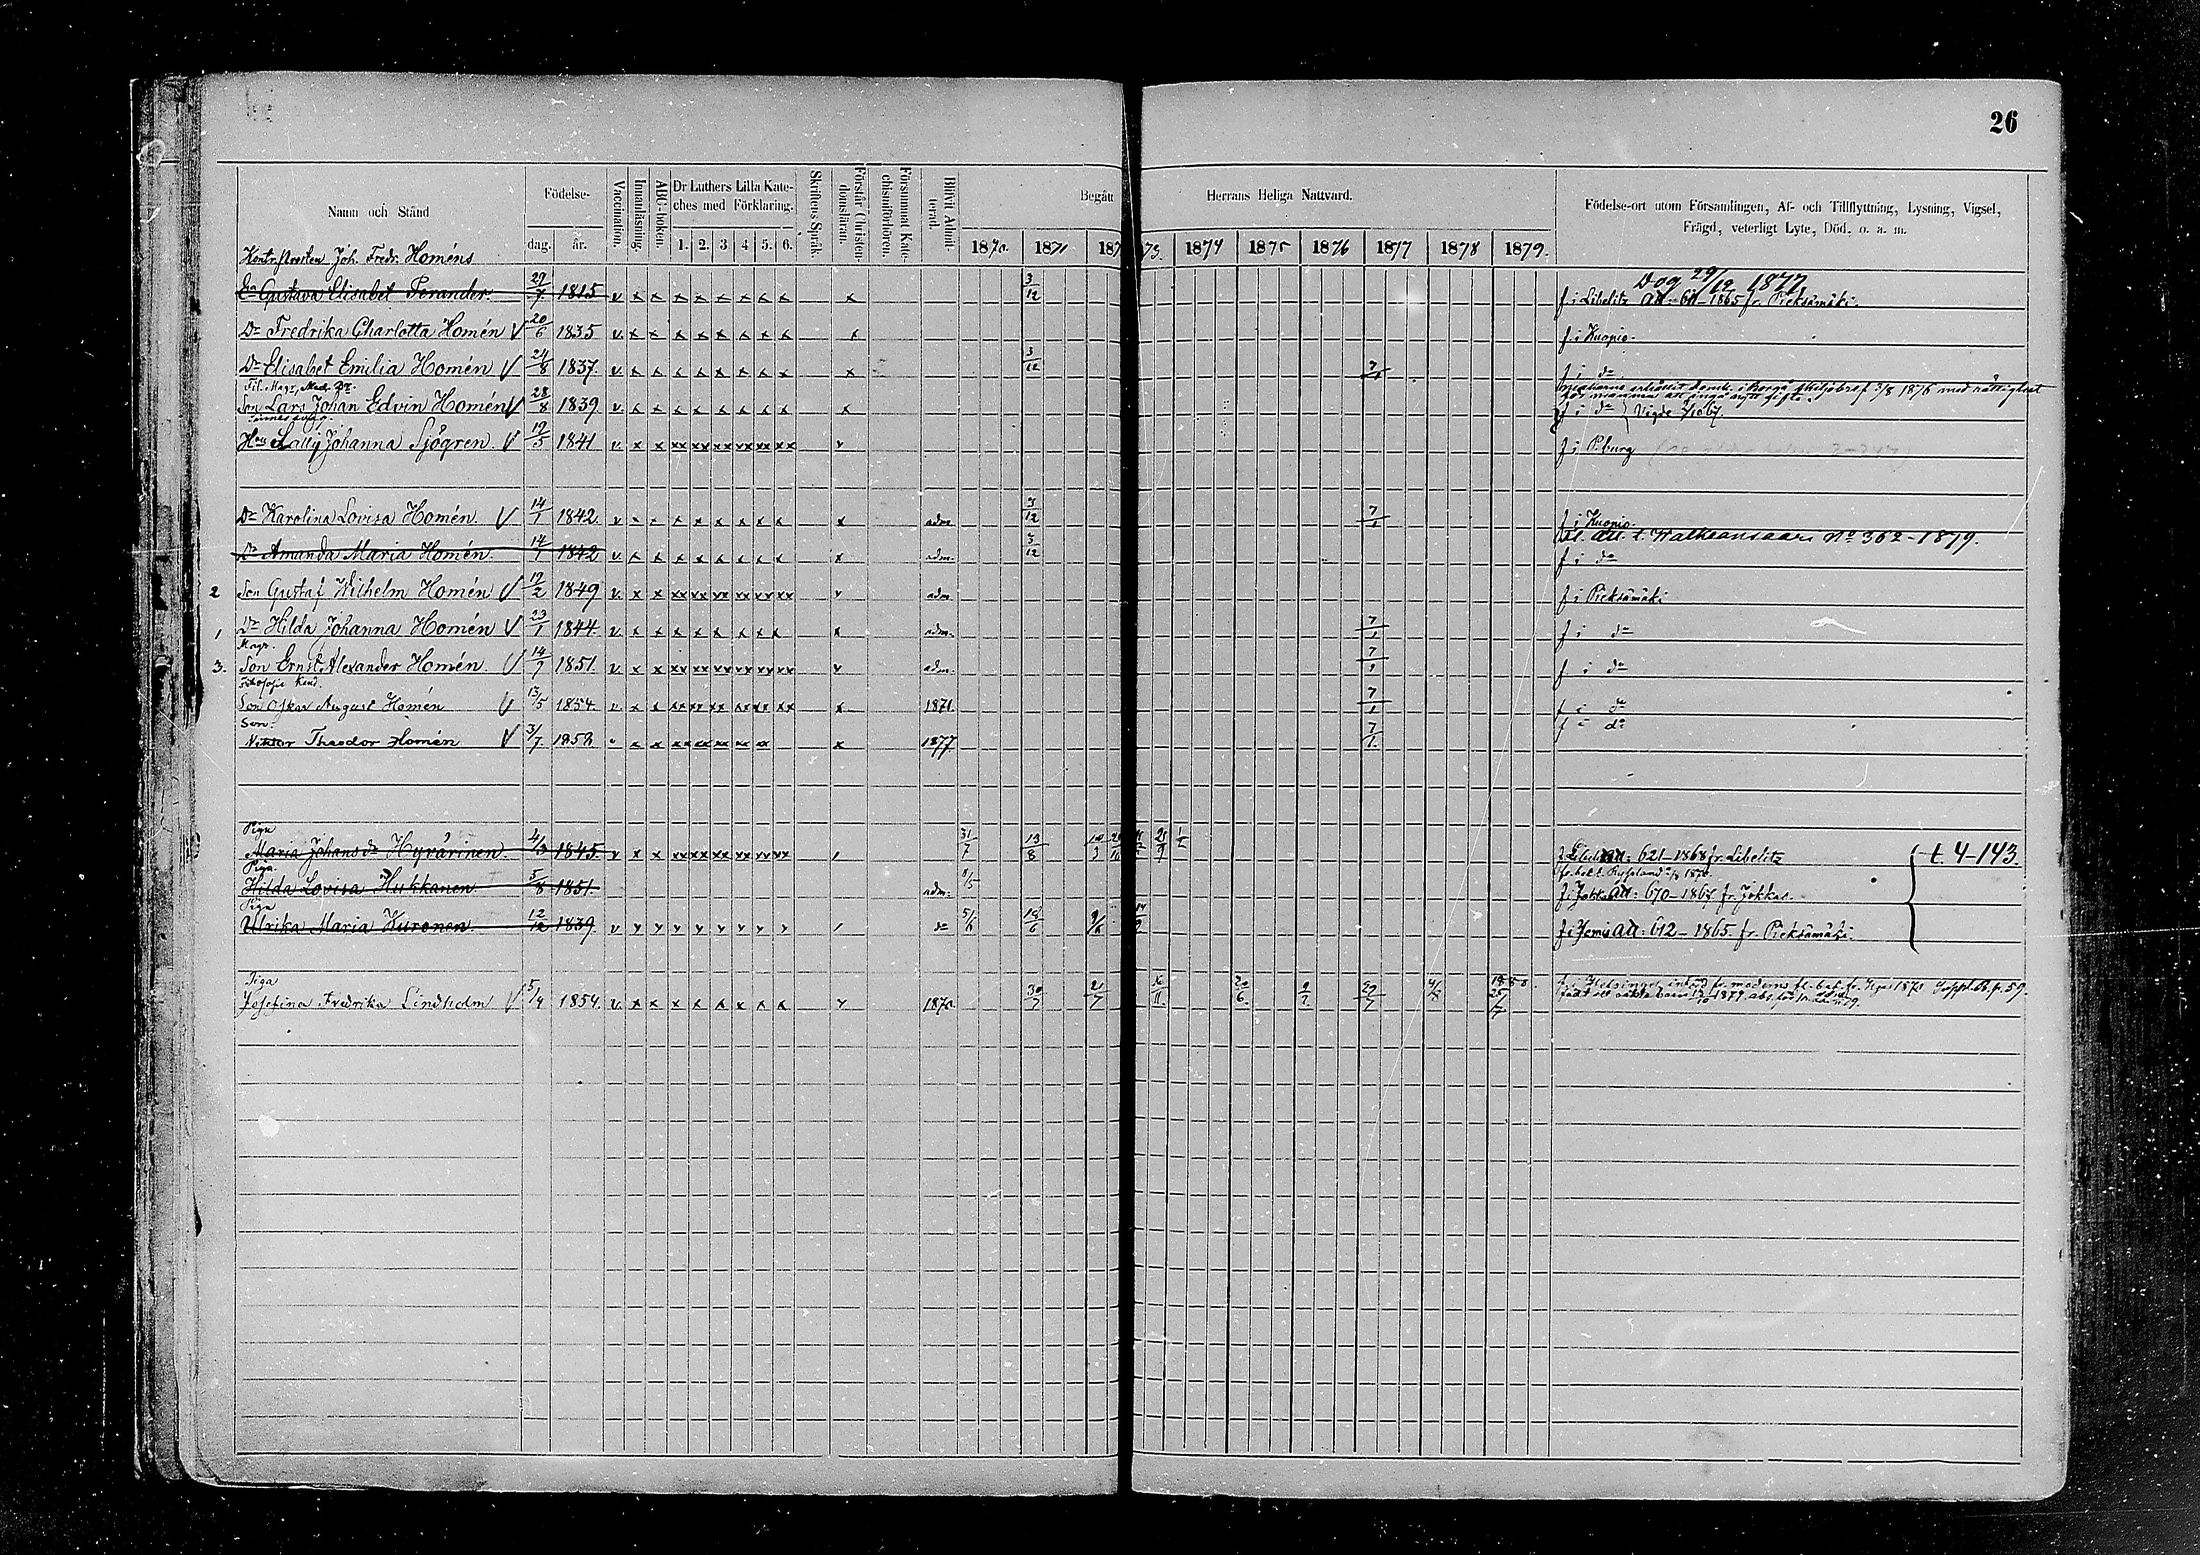 26
Namn och Stånd
Födelse-
dag. år.
Vaccination.
Innanläsning.
ABC-boken.
Dr Luthers Lilla Kate-
ches med Förklaring.
1. 2. 3 4 5. 6.
Skriftens Språk.
Förstår Christen-
domsläran.
Försummat Kate-
chismiförhören.
Blifvit Admit-
terad.
Begått Herrans Heliga Nattvard.
1870. 1871 187 73. 1874 1875 1876 1877 1878 1879.
Födelse-ort utom Församlingen, Af- och Tillflyttning, Lysning, Vigsel,
Frägd, veterligt Lyte, Död, o. a. m.
Kontr. Prosten Joh. Fredr. Homéns
Dog 29/12 1877.
Ea Gustava Elisabet Perander. 29/7 1815 v x x x x x x x x x 3/12 f. i Libelitz att: 611-1865 fr. Pieksämäki.
Dr Fredrika Charlotta Homén V 20/6 1835 v. x x x x x x x x x f. i Kuopio.
Dr Elisabet Emilia Homén V 24/8 1837. v x x x x x x x x x 3/12 7/1 f. i do
Fil. Magr, Med. Dr.
Son Lars Johan Edvin Homén V 28/8 1839 v x x x x x x x x x f i do Vigde
Hu Lally Johanna Sjögren. V 19/5 1841 v x x xx xx xx xx xx xx v f i P.burg
Dr Karolina Lovisa Homén. V 14/1 1842. v x x x x x x x x x adm 3/12 7/1 f i Kuopio.
att. t. Walkeansaari No 362-1879.
Dr Amanda Maria Homén. 14/1 1842 v. x x x x x x x x x adm. 3/12 f i do
2 Son Gustaf Wilhelm Homén V 19/2 1849 v. x x xx xx xx xx xx xx v adm f i Pieksämäki
1 Dr Hilda Johanna Homén V 23/1 1844. v. x x x x x x x x x adm. 7/1 f i do
Magr.
3. Son Ernst Alexander Homén. V 14/7 1851. v. x x xx xx xx xx xx xx v adm. 7/1 f i do
Filosofie Kand.
Son Oskar August Homén V 13/5 1854. v x x xx xx xx xx xx xx x 1871. 7/1 f i do
Son
Viktor Theodor Homén V 3/7 1858 x x xx xx xx xx xx x 1877. 7/1. f i do
Piga
Maria Johansdr Hyvärinen. 4/3 1845. v x x xx xx xx xx xx xx 31/7 13/8 att: 621-1868 fr. Libelitz t. 4-143.
Piga.
Hilda Lovisa Hukkanen 5/8 1851. adm: att: 670-1867 fr. Jokkas.
Piga
Ulrika Maria Kuronen. 12/12 1839 v v v v v v v v v do 5/6 18/6 9/6 att: 612-1865. fr. Pieksämäki.
Piga
Josefina Fredrika Lindholm V 5/4 1854. v. x x x x x x x x v 1870. 30/7 21/7 20/6. 9/7. 29/7 25/7